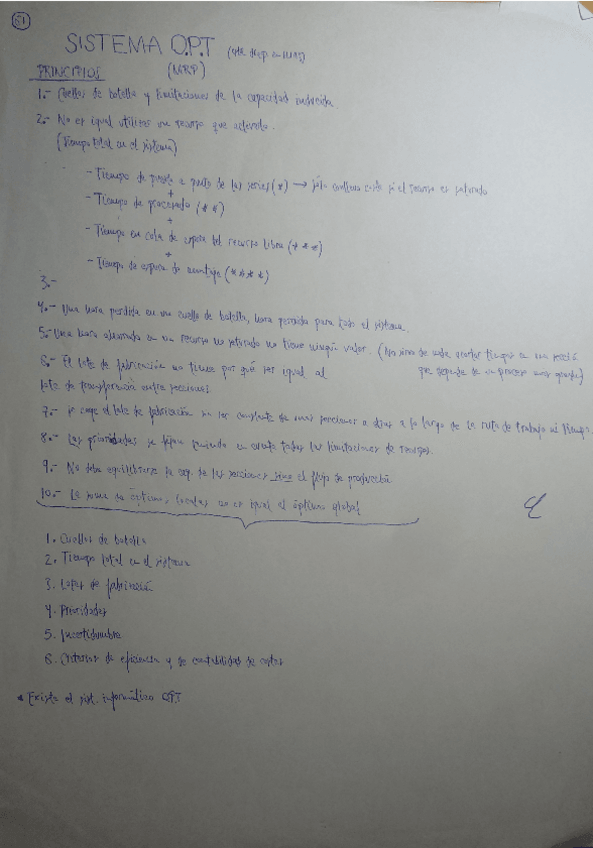 61
SISTEMA O.P.T
(MRP)
PRINCIPIOS
1.- Cuellos de botella y limitaciones de la capacidad inducida.
2.- No es igual utilizar un recurso que activarlo.
(Tiempo total en el sistema)
- Tiempo de puesta a punto de las series (*) → sólo conlleva coste si el recurso es saturado
+
- Tiempo de procesado (**)
+
- Tiempo en cola de espera del recurso libre (***)
+
- Tiempo de espera de montaje (****)
3.-
4.- Una hora perdida en un cuello de botella, hora perdida para todo el sistema.
5.- Una hora ahorrada en un recurso no saturado no tiene ningún valor. (No sirve de nada acortar tiempo en una sección
que depende de un proceso más grande)
6.- El lote de fabricación no tiene por qué ser igual al
lote de transferencia entre secciones
7.- el lote de fabricación no ser constante de unas secciones a otras a lo largo de la ruta de trabajo ni tiempo.
8.- Las prioridades se fijan teniendo en cuenta todas las limitaciones de recursos.
9.- No debe equilibrarse la cap. de las secciones sino el flujo de producción
10.- La suma de óptimos locales no es igual al óptimo global
1. Cuellos de botella
2. Tiempo total en el sistema
3. Lotes de fabricación
4. Prioridades
5. Incertidumbre
6. Criterios de eficiencia y de contabilidad de costes
* Existe el sist. informático OPT